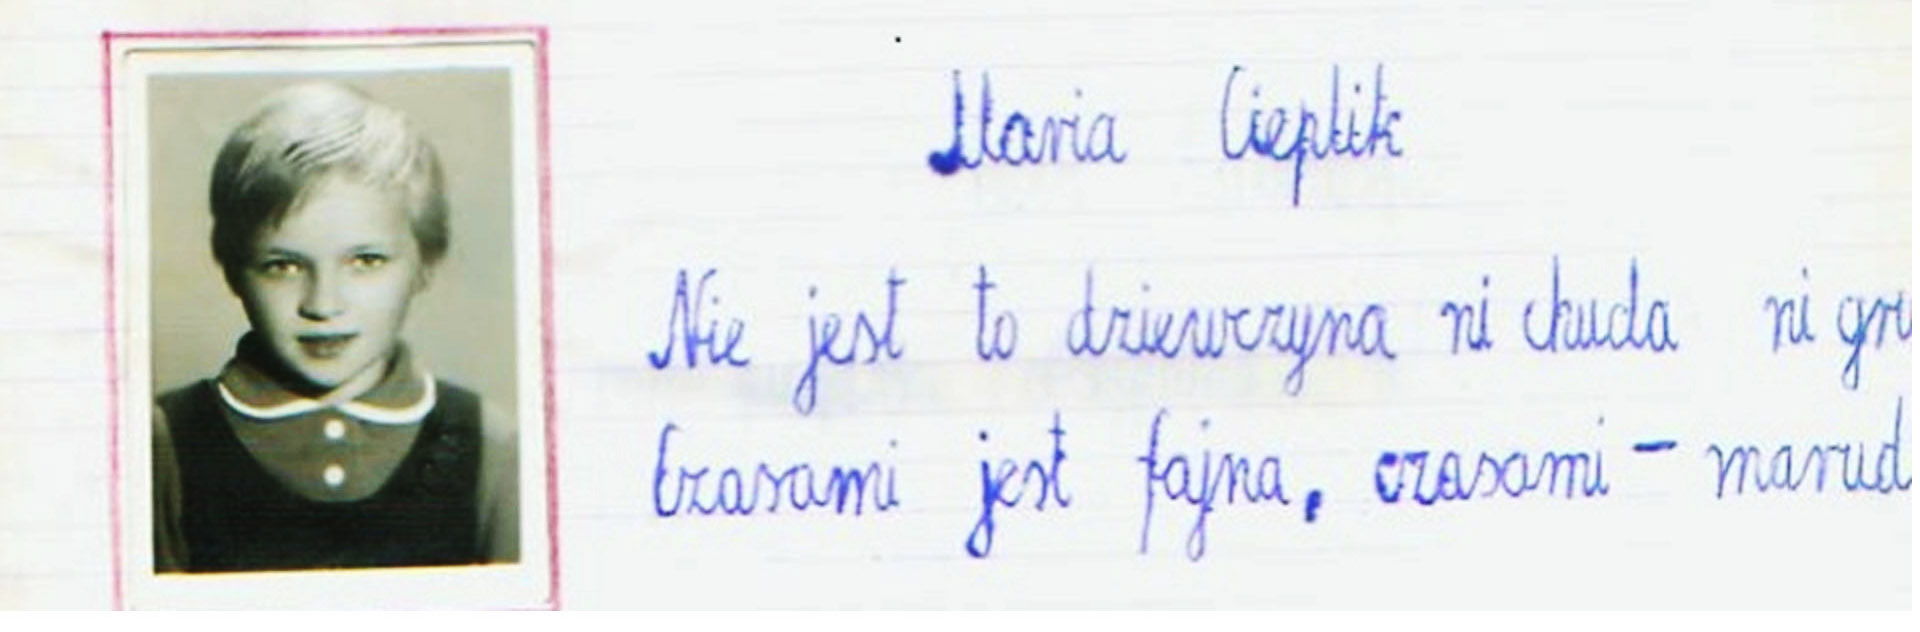 Maria Cieplik
Nie jest to dziewczyna ni chuda ni gru
Czasami jest fajna, czasami - marud